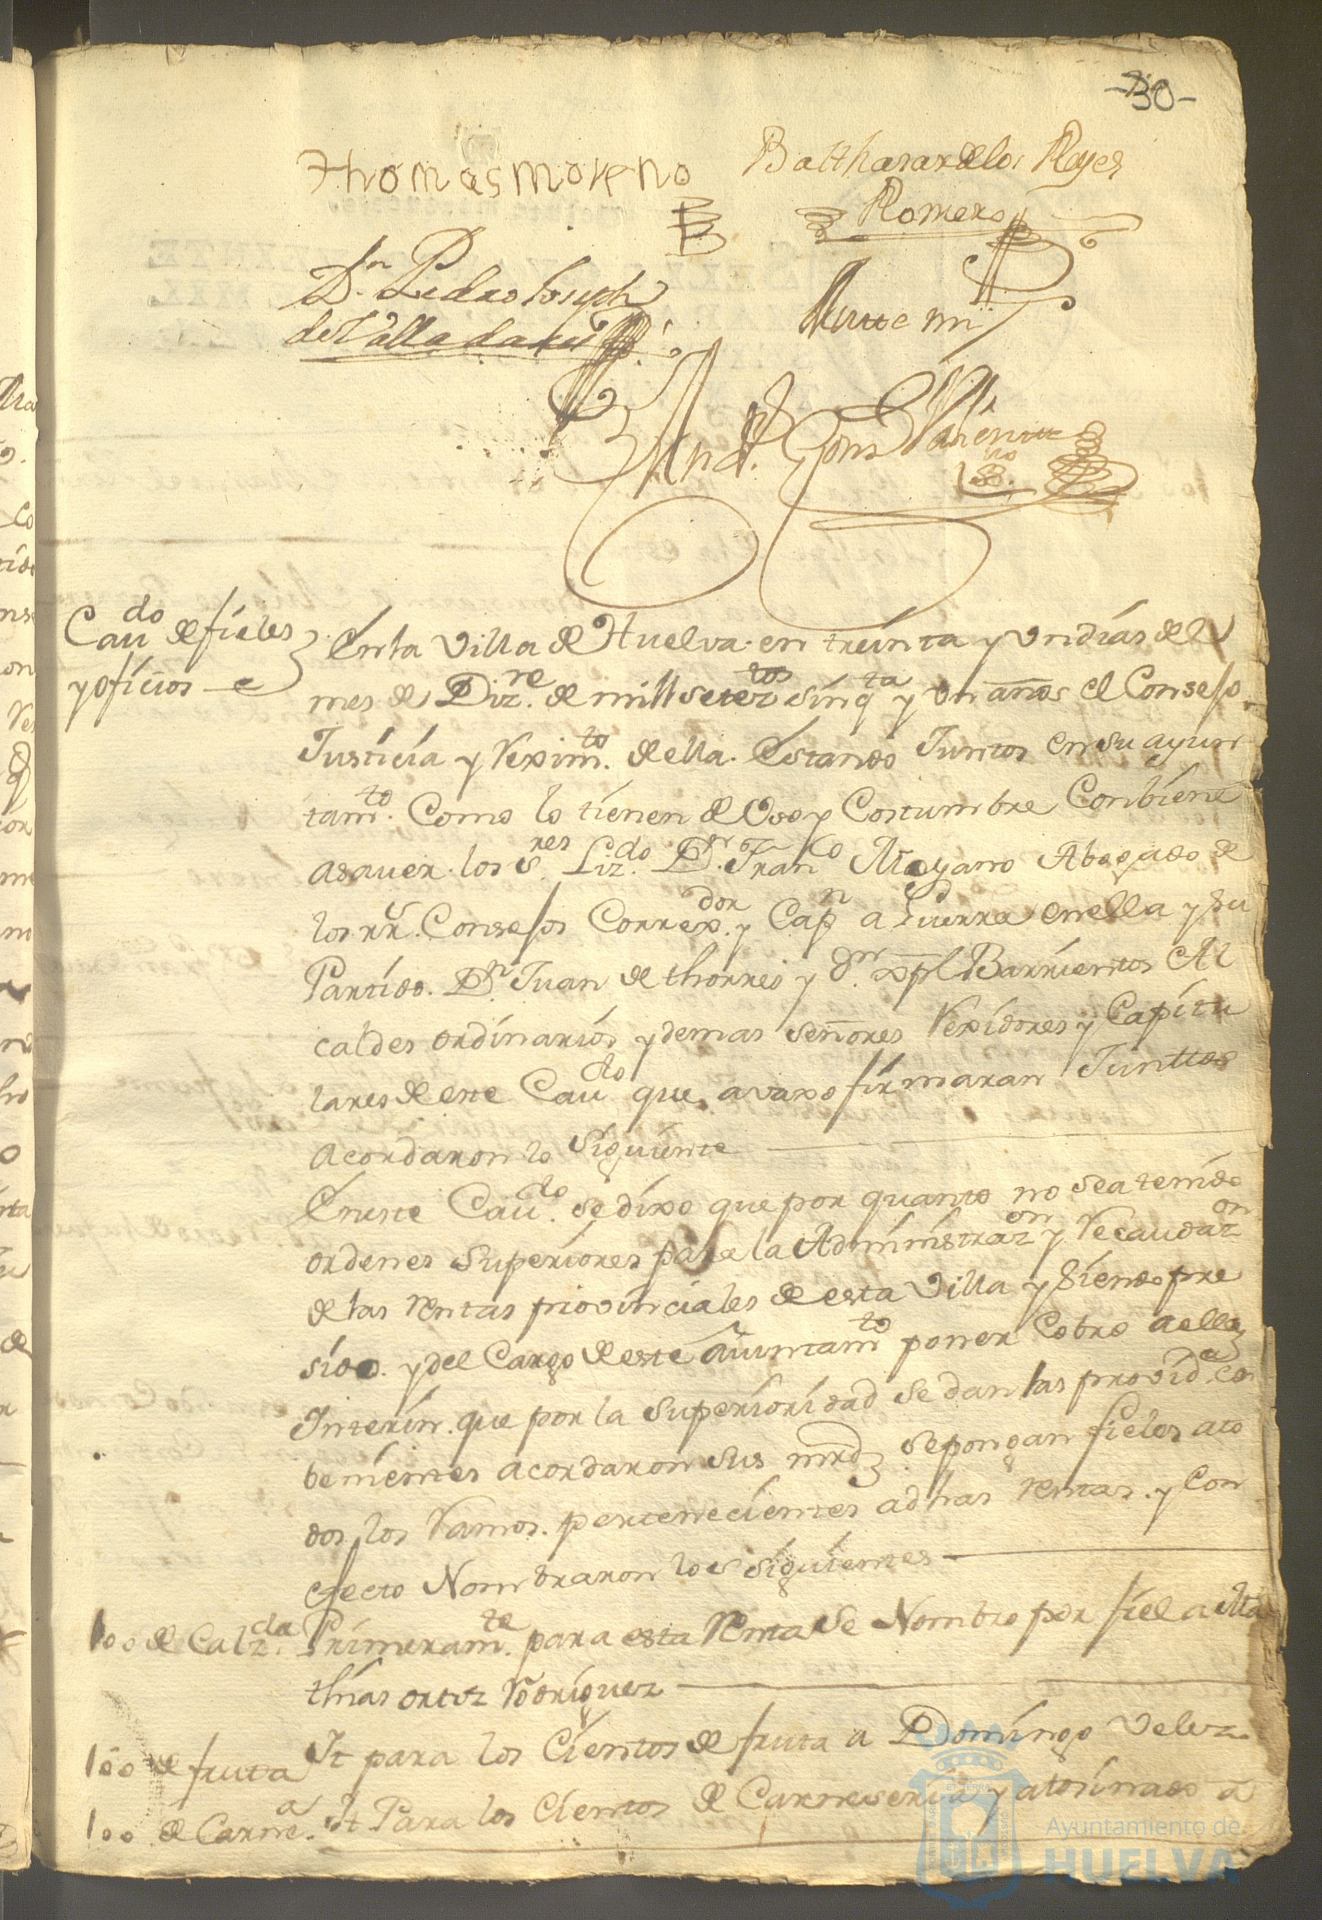 -30-
Thomas Moreno
Balthasar de los Reyes
Romero
Dn. Pedro Joseph
de Valladares
Ante mi
And. Gonz
Cavdo de fieles
y oficios
En la Villa de Huelva en treinta y un dias del
mes de Dizre. de mill setezos sinqta y un años el Consejo
Justicia y Reximto. de ella. Estando Juntos en su ayun
tamto. Como lo tienen de Uso y Costumbre Conbiene
asaver los Sres. Lizdo. Dn. Franco Moyano Abogado de
los rr. Consejos Correxdor. y Capn a Guerra en ella y su
Partido. Dn. Juan de thorres y Dn. xpl Barrientos Al
caldes ordinarios y demas señores Rexidores y Capitu
lares de este Cavdo que avaxo firmaran Junttos
acordaron lo Siguiente
En este Cavdo. se dixo que por quanto no sea tenido
ordenes Superiores para la Administrazon y Recaudazon
de las Rentas provinciales de esta Villa y siendo pre
siso. y del Cargo de este Aiuntamto poner Cobro a ellas
Interin. que por la Superioridad se dan las providas. co
benientes acordaron sus mrds se pongan fieles a to
dos los Ramos. pertenecientes a dhas Rentas. y Con
efecto Nombraron los siguientes
100 de Calzda.
Primeramte. para esta Renta se Nombro por fiel a Ma
thias ortiz Rodriguez
100 de fruta
It para los Cientos de fruta a Domingo Velez
100 de Carnea.
It Para los Cientos de Carneseria y atosinado a
Ayuntamiento de
HUELVA